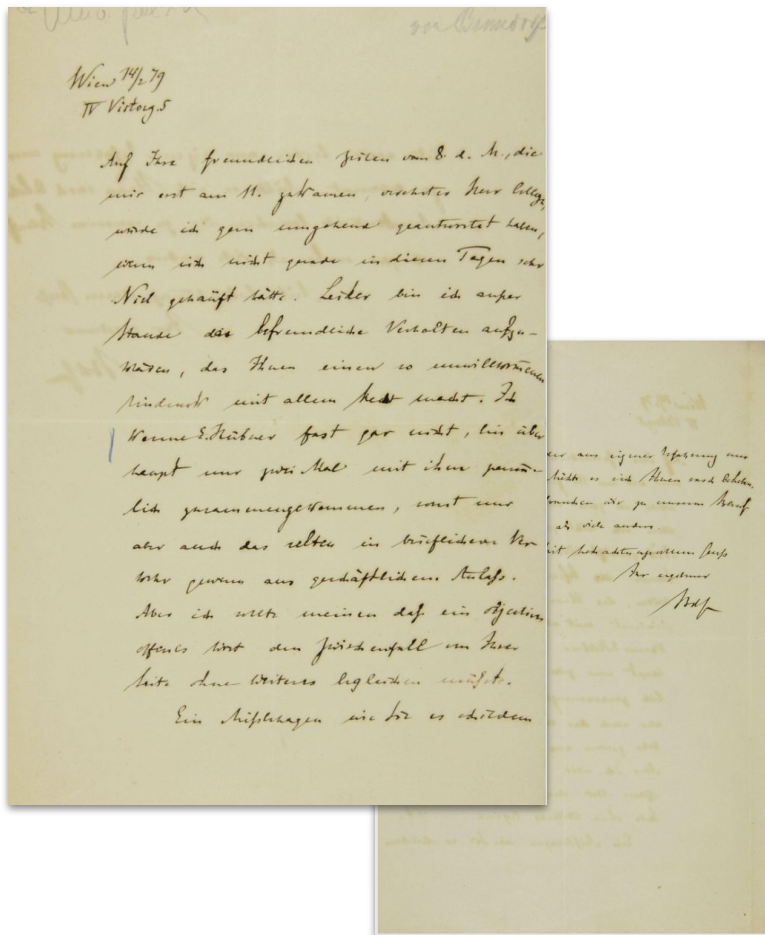 von Benndorf
Wien 14/2 79
IV Victorg. 5
Auf Ihre freundlichen Zeilen vom 8. d. M., die
mir erst am 11. zukamen, verehrter Herr College,
würde ich gern umgehend geantwortet haben,
wenn sich nicht gerade in diesen Tagen sehr
Viel gehäuft hätte. Leider bin ich außer
Stande das befremdliche Verhalten aufzu-
klären, das Ihnen einen so unwillkommenen
Eindruck mit allem Recht macht. Ich
kenne E. Hübner fast gar nicht, bin über
haupt nur zwei Mal mit ihm persön-
lich zusammengekommen, sonst nur
aber auch das selten in brieflichem Ver
kehr gewesen aus geschäftlichem Anlaß.
Aber ich sollte meinen daß ein
offenes Wort den Zwischenfall von Ihrer
Seite ohne Weiteres begleichen müßte.
Ein Mißbehagen wie Sie es schildern
aus eigener Erfahrung nur
es sich Ihnen nach
brauchen wir zu unserem Beruf
als viele andere.
Mit hochachtungsvollem Gruß
Ihr ergebener
Bdf